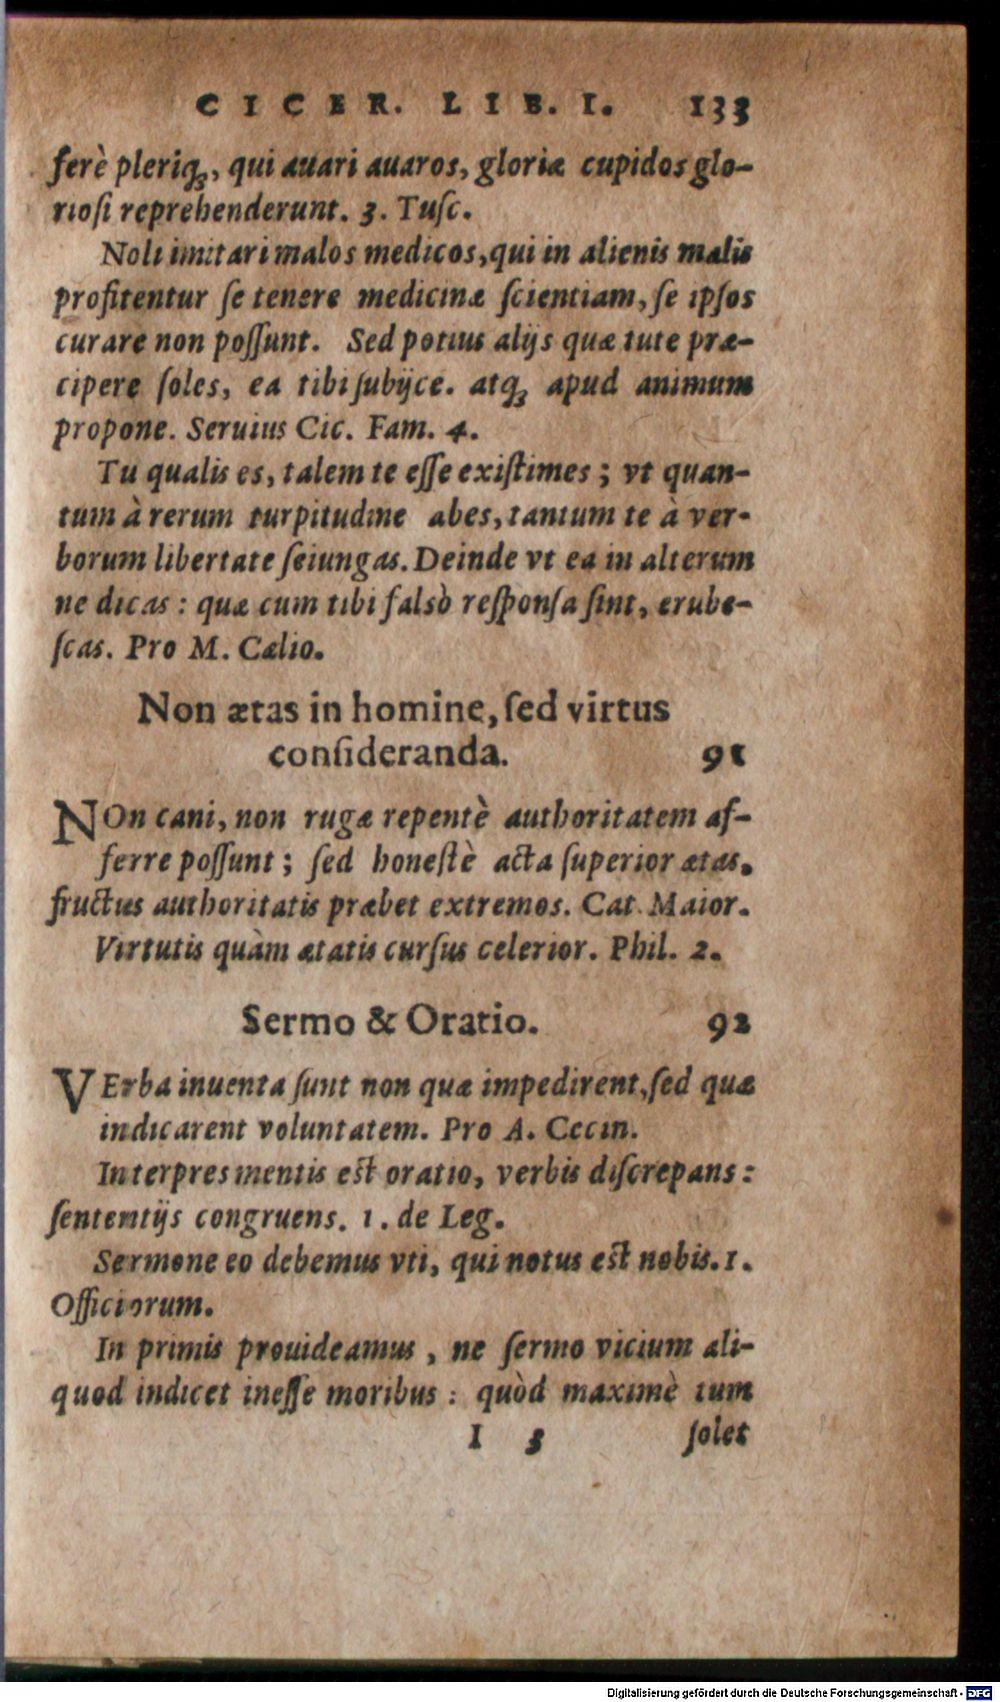 CICER. LIB. I. 133
ferè pleriq́ꝫ, qui auari auaros, gloriæ cupidos glo-
riosi reprehenderunt. 3. Tusc.
Noli imitari malos medicos, qui in alienis malis
profitentur se tenere medicinæ scientiam, se ipsos
curare non possunt. Sed potius alijs quæ tute præ-
cipere soles, ea tibi subijce. atq́ꝫ apud animum
propone. Seruius Cic. Fam. 4.
Tu qualis es, talem te esse existimes; vt quan-
tum à rerum turpitudine abes, tantum te à ver-
borum libertate seiungas. Deinde vt ea in alterum
ne dicas: quæ cum tibi falsò responsa sint, erube-
scas. Pro M. Cælio.
Non ætas in homine, sed virtus
consideranda. 91
NOn cani, non rugæ repentè authoritatem af-
ferre possunt; sed honestè acta superior ætas.
fructus authoritatis præbet extremos. Cat. Maior.
Virtutis quàm ætatis cursus celerior. Phil. 2.
Sermo & Oratio. 92
VErba inuenta sunt non quæ impedirent, sed quæ
indicarent voluntatem. Pro A. Cecin.
Interpres mentis est oratio, verbis discrepans:
sententijs congruens. 1. de Leg.
Sermone eo debemus vti, qui notus est nobis. 1.
Officiorum.
In primis prouideamus, ne sermo vicium ali-
quod indicet inesse moribus: quòd maximè tum
I 3 solet
Digitalisierung gefördert durch die Deutsche Forschungsgemeinschaft - DFG